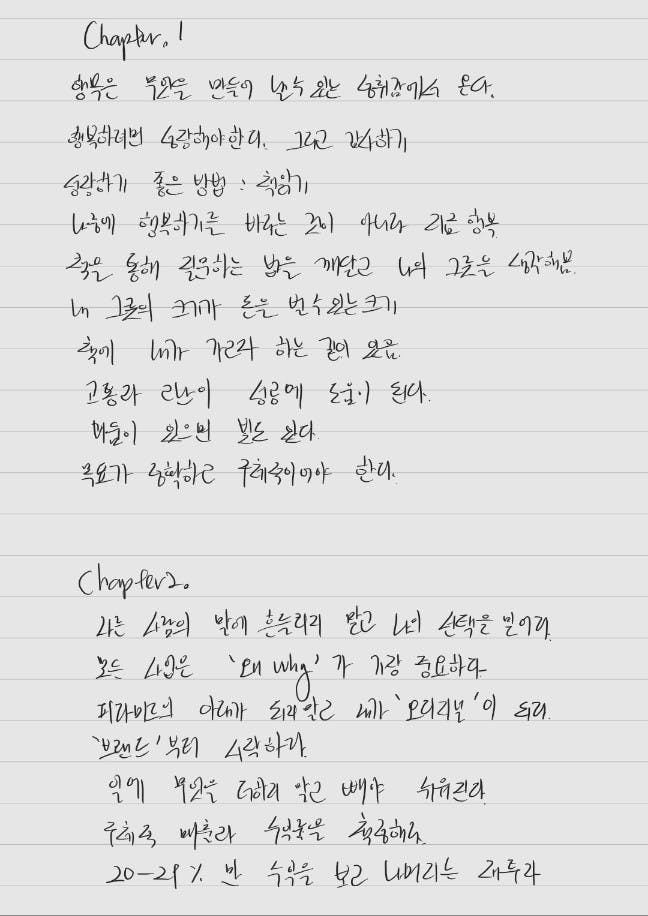 Chapter. 1
행복은 무언가를 만들어 낼 수 있는 성취감에서 온다.
행복하려면 성장해야 한다. 그리고 감사하기
성장하기 좋은 방법 : 책읽기
나중에 행복하기를 바라는 것이 아니라 지금 행복
책을 통해 질문하는 법을 깨닫고 나의 그릇을 생각해봄.
내 그릇의 크기가 돈을 벌 수 있는 크기
책에 내가 가고자 하는 길이 있음.
고통과 고난이 성공에 도움이 된다.
어둠이 있으면 빛도 있다
목표가 명확하고 구체적이어야 한다.
Chapter2.
다른 사람의 말에 흔들리지 말고 나의 선택을 믿어라.
모든 사업은 '왜 why'가 가장 중요하다
피라미드의 아래가 되지 않고 내가 '오리지널'이 되라.
'브랜드'부터 시작하라.
일에 무엇을 더하지 않고 빼야 치유된다
구체적 매출과 수익을 측정해라.
20-29% 만 수익을 보고 나머지는 재투자